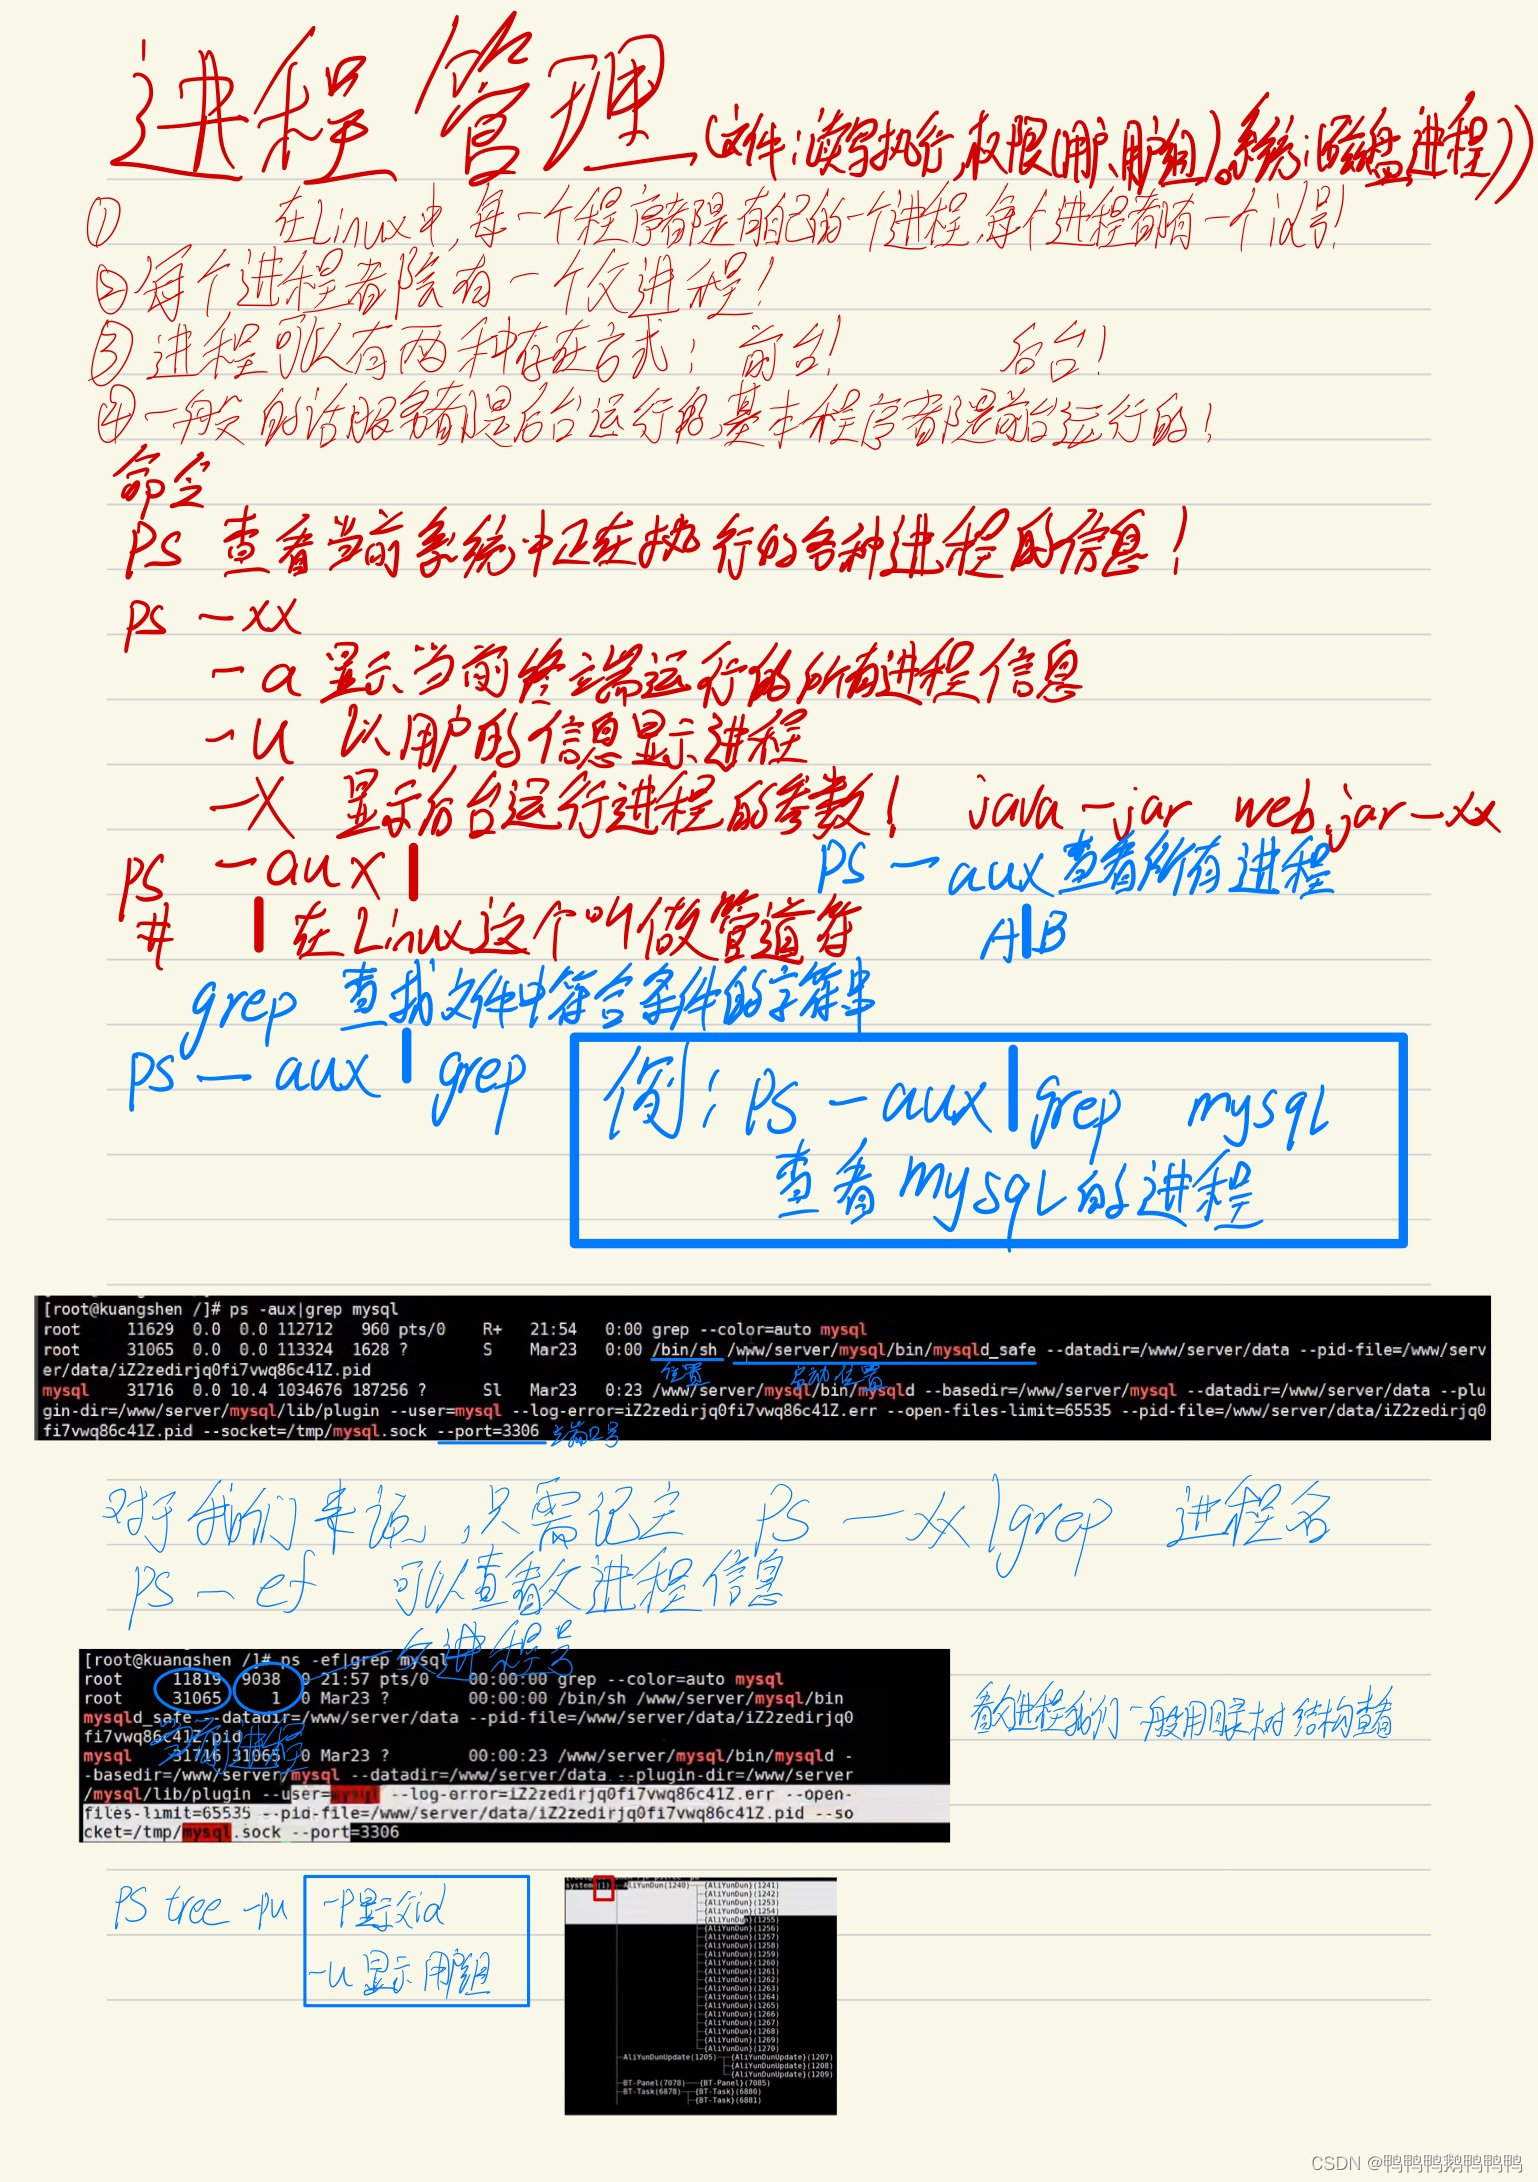 进程管理(文件:读写执行,权限(用户、用户组)。系统:(磁盘,进程))
① 在Linux中,每一个程序都是有自己的一个进程,每个进程都有一个id号!
② 每个进程都会有一个父进程!
③ 进程可以有两种存在方式: 前台! 后台!
④ 一般的话服务都是后台运行的,基本程序都是前台运行的!
命令
ps 查看当前系统中正在执行的各种进程的信息!
ps -xx
-a 显示当前终端运行的所有进程信息
-u 以用户的信息显示进程
-x 显示后台运行进程的参数! java -jar web.jar -xx
ps -aux| ps -aux查看所有进程
# | 在Linux这个叫做管道符 A|B
grep 查找文件中符合条件的字符串
ps -aux | grep
例: ps -aux|grep mysql
查看mysql的进程
[root@kuangshen /]# ps -aux|grep mysql
root 11629 0.0 0.0 112712 960 pts/0 R+ 21:54 0:00 grep --color=auto mysql
root 31065 0.0 0.0 113324 1628 ? S Mar23 0:00 /bin/sh /www/server/mysql/bin/mysqld_safe --datadir=/www/server/data --pid-file=/www/serv
位置 启动位置
er/data/iZ2zedirjq0fi7vwq86c41Z.pid
mysql 31716 0.0 10.4 1034676 187256 ? Sl Mar23 0:23 /www/server/mysql/bin/mysqld --basedir=/www/server/mysql --datadir=/www/server/data --plu
gin-dir=/www/server/mysql/lib/plugin --user=mysql --log-error=iZ2zedirjq0fi7vwq86c41Z.err --open-files-limit=65535 --pid-file=/www/server/data/iZ2zedirjq0
fi7vwq86c41Z.pid --socket=/tmp/mysql.sock --port=3306 端口号
对于我们来说,只需记住 ps -xx|grep 进程名
ps -ef 可以查看父进程信息
父进程号
[root@kuangshen /]# ps -ef|grep mysql
root 11819 9038 0 21:57 pts/0 00:00:00 grep --color=auto mysql
root 31065 1 0 Mar23 ? 00:00:00 /bin/sh /www/server/mysql/bin
看父进程我们一般用目录树结构查看
mysqld_safe --datadir=/www/server/data --pid-file=/www/server/data/iZ2zedirjq0
fi7vwq86c41Z.pid
当前进程
mysql 31716 31065 0 Mar23 ? 00:00:23 /www/server/mysql/bin/mysqld -
-basedir=/www/server/mysql --datadir=/www/server/data --plugin-dir=/www/server
/mysql/lib/plugin --user=mysql --log-error=iZ2zedirjq0fi7vwq86c41Z.err --open-
files-limit=65535 --pid-file=/www/server/data/iZ2zedirjq0fi7vwq86c41Z.pid --so
cket=/tmp/mysql.sock --port=3306
ps tree -pu
-P显示父id
-u 显示用户组
systemd(1)─AliYunDun(1240)─{AliYunDun}(1241)
{AliYunDun}(1242)
{AliYunDun}(1253)
{AliYunDun}(1254)
{AliYunDun}(1255)
{AliYunDun}(1256)
{AliYunDun}(1257)
{AliYunDun}(1258)
{AliYunDun}(1259)
{AliYunDun}(1260)
{AliYunDun}(1261)
{AliYunDun}(1262)
{AliYunDun}(1263)
{AliYunDun}(1264)
{AliYunDun}(1265)
{AliYunDun}(1266)
{AliYunDun}(1267)
{AliYunDun}(1268)
{AliYunDun}(1269)
{AliYunDun}(1270)
AliYunDunUpdate(1205)─{AliYunDunUpdate}(1207)
{AliYunDunUpdate}(1208)
{AliYunDunUpdate}(1209)
BT-Panel(7078)─{BT-Panel}(7085)
BT-Task(6878)─{BT-Task}(6880)
{BT-Task}(6881)
CSDN @鸭鸭鸭鹅鸭鸭鸭